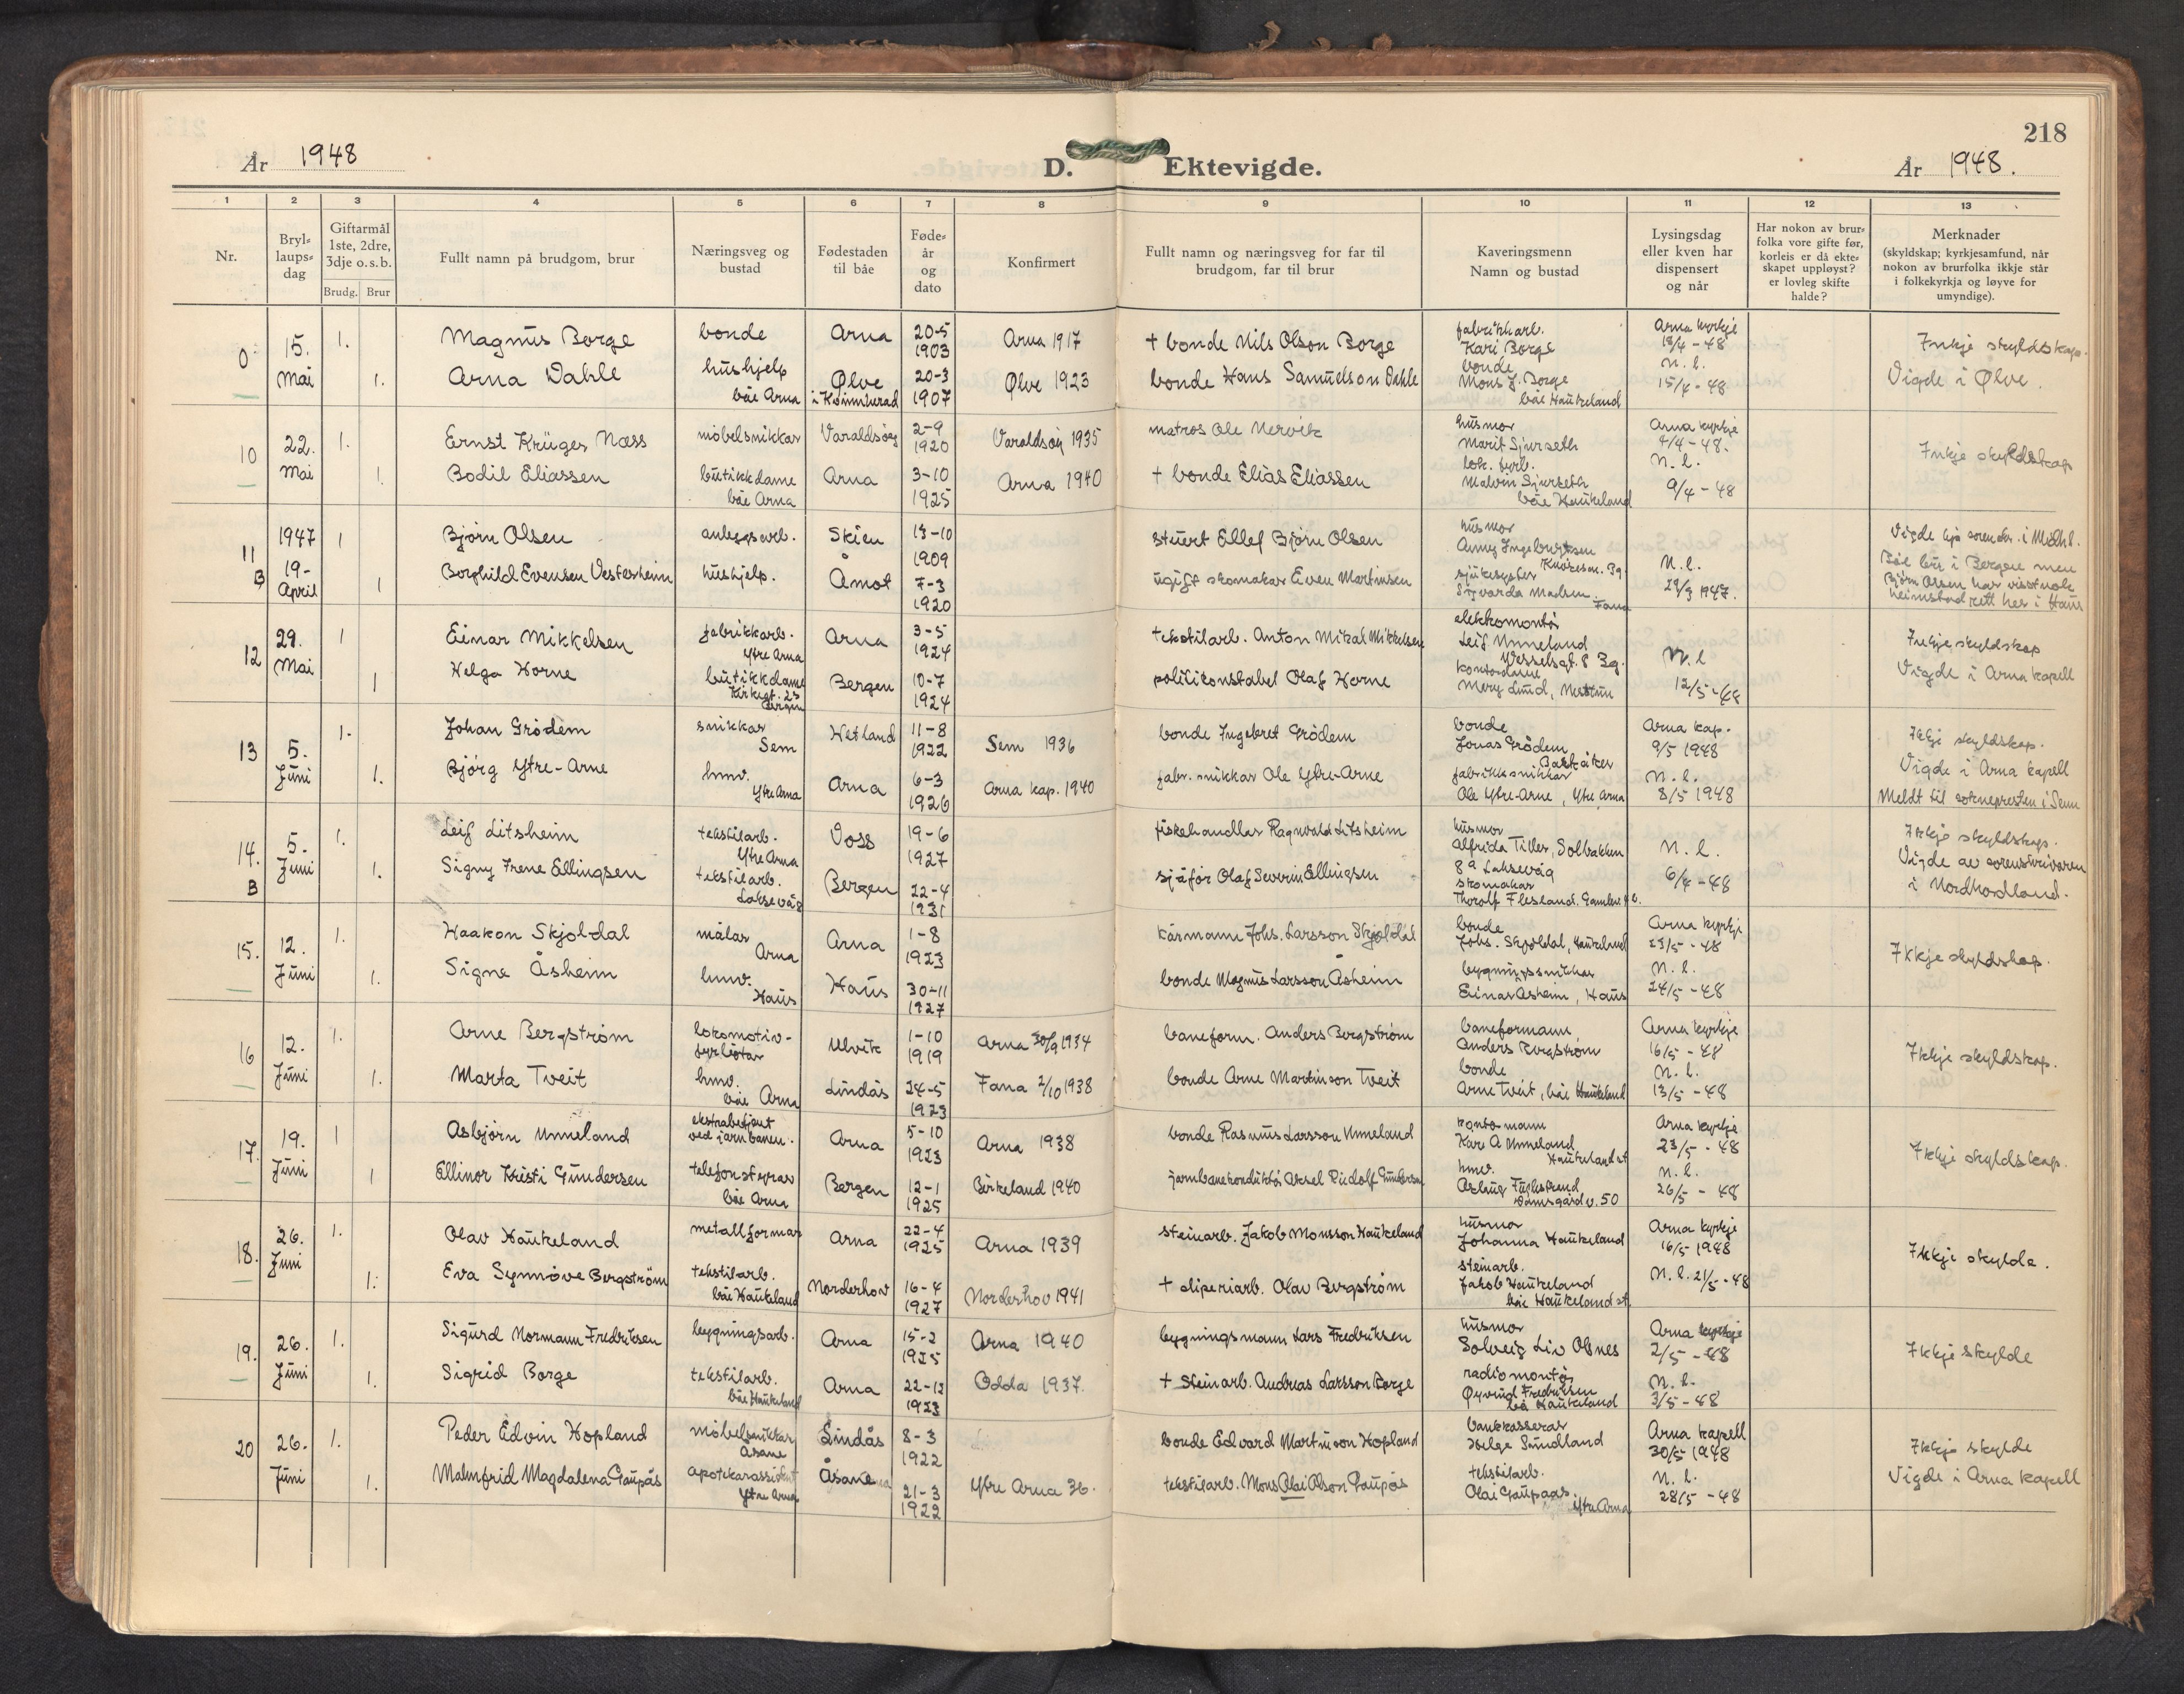 218
År 1948
D. Ektevigde.
År 1948.
1 2 3 4 5 6 7 8 9 10 11 12 13
Nr.
Bryl-
laups-
dag
Giftarmål
1ste, 2dre,
3dje o.s.b.
Brudg. Brur
Fullt namn på brudgom, brur
Næringsveg og
bustad
Fødestaden
til båe
Føde-
år
og
dato
Konfirmert
Fullt namn og næringsveg for far til
brudgom, far til brur
Kaveringsmenn
Namn og bustad
Lysingsdag
eller kven har
dispensert
og når
Har nokon av brur-
folka vore gifte før,
korleis er då ekte-
skapet uppløyst?
er lovleg skifte
halde?
Merknader
(skyldskap; kyrkjesamfund, når
nokon av brurfolka ikkje står
i folkekyrkja og løyve for
umyndige).
0 15. Mai
1. Magnus Borge bonde Arna 20-5 1903 Arna 1917 + bonde Nils Olson Borge fabrikkarb. Kari Borge Arna kyrkje 18/4-48 Inkje skyldskap.
1. Arna Dahle hushjelp båe Arna Ølve i Kvinnherad 20-3 1907 Ølve 1923 bonde Hans Samuelson Dahle bonde Mons J. Borge båe Haukeland n. l. 15/4-48 Vigde i Ølve.
10 22. Mai
1. Ernst Krüger Næss møbelsnikkar Varaldsøy 2-9 1920 Varaldsøy 1935 matros Ole Nervik husmor Marit Sjurseth Arna kyrkje 4/4-48. Inkje skyldskap
1. Bodil Eliassen butikkdame båe Arna Arna 3-10 1925 Arna 1940 + bonde Elias Eliassen lok. fyrb. Malvin Sjurseth båe Haukeland n. l. 9/4-48
11 B 1947 19- April
1 Bjørn Olsen anleggsarb. Skien 13-10 1909 stuert Ellef Bjørn Olsen husmor Anny Ingebrigtsen Vigde hjå sorenskr. i Midhl.
1 Borghild Evensen Vesterheim hushjelp. Åmot 7-3 1920 ugift skomakar Even Martinsen sjukesyster Sigvarda Madsen Fana n. l. 29/3 1947. Båe bur i Bergen men
Bjørn Olsen har visstnok
heimstadrett her i Haus
12 29. Mai
1 Einar Mikkelsen fabrikkarb. Ytre Arna Arna 3-5 1924 tekstilarb. Anton Mikal Mikkelsen elekkomontør Leif Unneland Wesselsgt. 8 Bg. n. l. Inkje skyldskap
1 Helga Horne butikkdame Kirkegt. 23 Bergen Bergen 10-7 1924 politikonstabel Olaf Horne kontordame Mery Lund, Nesttun 12/5-48 Vigde i Arna kapell
13 5. Juni
1. Johan Grödem snikkar Sem Hetland 11-8 1922 Sem 1936 bonde Ingebret Grödem bonde Jonas Grödem Arna kap. 9/5 1948 Ikkje skyldskap.
1. Bjørg Ytre-Arne hmv. Ytre Arna Arna 6-3 1926 Arna kap. 1940 fabr. snikkar Ole Ytre-Arne fabrikksnikkar Ole Ytre-Arne, Ytre Arna n. l. 8/5 1948 Vigde i Arna kapell
Meldt til soknepresten i Sem
14. B 5. Juni
1. Leif Litsheim tekstilarb. Ytre Arna Voss 19-6 1927 fiskehandlar Ragnvald Litsheim husmor Alfrida Tiller, Solbakken 89 Laksevåg n. l. Ikkje skyldskap.
1. Signy Irene Ellingsen tekstilarb. Laksevåg Bergen 22-4 1931 sjåfør Olaf Severin Ellingsen skomakar Thorolf Flesland. 6/4-48 Vigde av sorenskrivaren
i Nordhordland.
15. 12. Juni
1. Haakon Skjoldal målar Arna Arna 1-8 1923 kårmann Johs. Larsson Skjoldal bonde Johs. Skjoldal, Haukeland Arna kyrkje 23/5-48 Ikkje skyldskap.
1. Signe Åsheim hmv. Haus Haus 30-11 1927 bonde Magnus Larsson Åsheim bygningssnikkar Einar Åsheim, Haus n. l. 24/5-48
16 12. Juni
1. Arne Bergström lokomotiv-fyrbøtar Ulvik 1-10 1919 Arna 30/9 1934 baneform. Anders Bergström baneformann Anders Bergström Arna kyrkje 16/5-48 Ikkje skyldskap.
1. Marta Tveit hmv. båe Arna Lindås 24-5 1923 Fana 2/10 1938 bonde Arne Martinson Tveit bonde Arne Tveit, båe Haukeland n. l. 13/5-48
17. 19. Juni
1 Asbjørn Unneland ekstrabetjent ved jarnbanen. Arna 5-10 1923 Arna 1938 bonde Rasmus Larsson Unneland kontormann Kåre A Unneland Haukeland st Arna kyrkje 23/5-48 Ikkje skyldskap.
1 Ellinor Kristi Gundersen telefonstyrar båe Arna Bergen 12-1 1925 Birkeland 1940 jarnbanekonduktør Aksel Rudolf Gundersen hmv. Aslaug Damsgårdv. 50 n. l. 26/5-48
18. 26. Juni
1. Olav Haukeland metallformar Arna 22-4 1925 Arna 1939 steinarb. Jakob Monsson Haukeland husmor Johanna Haukeland Arna kyrkje 16/5 1948 Ikkje skylde.
1. Eva Synnøve Bergström tekstilarb. båe Haukeland Norderhov 16-4 1927 Norderhov 1941 + sliperiarb. Olav Bergström steinarb. Jakob Haukeland båe Haukeland st. n. l. 21/5-48
19. 26. Juni
1. Sigurd Normann Fredriksen bygningsarb. Arna 15-2 1925 Arna 1940 bygningsmann Lars Fredriksen husmor Solveig Liv Olsnes Arna kyrkje 2/5-48 Ikkje skylde
1. Sigrid Borge tekstilarb. båe Haukeland Arna 22-12 1923 Odda 1937. + steinarb. Andreas Larsson Borge radiomontør Øyvind Fredriksen bå Haukeland n. l. 3/5-48
20 26. Juni
1. Peder Edvin Hopland møbelsnikkar Åsane Lindås 8-3 1922 bonde Edvard Martinson Hopland bankkasserar Helge Sundland Arna kapell 30/5 1948 Ikkje skylde
1. Malmfrid Magdalena Gaupås apotekarassistent Ytre Arna Åsane 21-3 1922 Ytre Arna 36. tekstilarb. Mons Olai Olson Gaupås tekstilarb. Olai Gaupaas. Ytre Arna n. l. 28/5-48 Vigde i Arna kapell